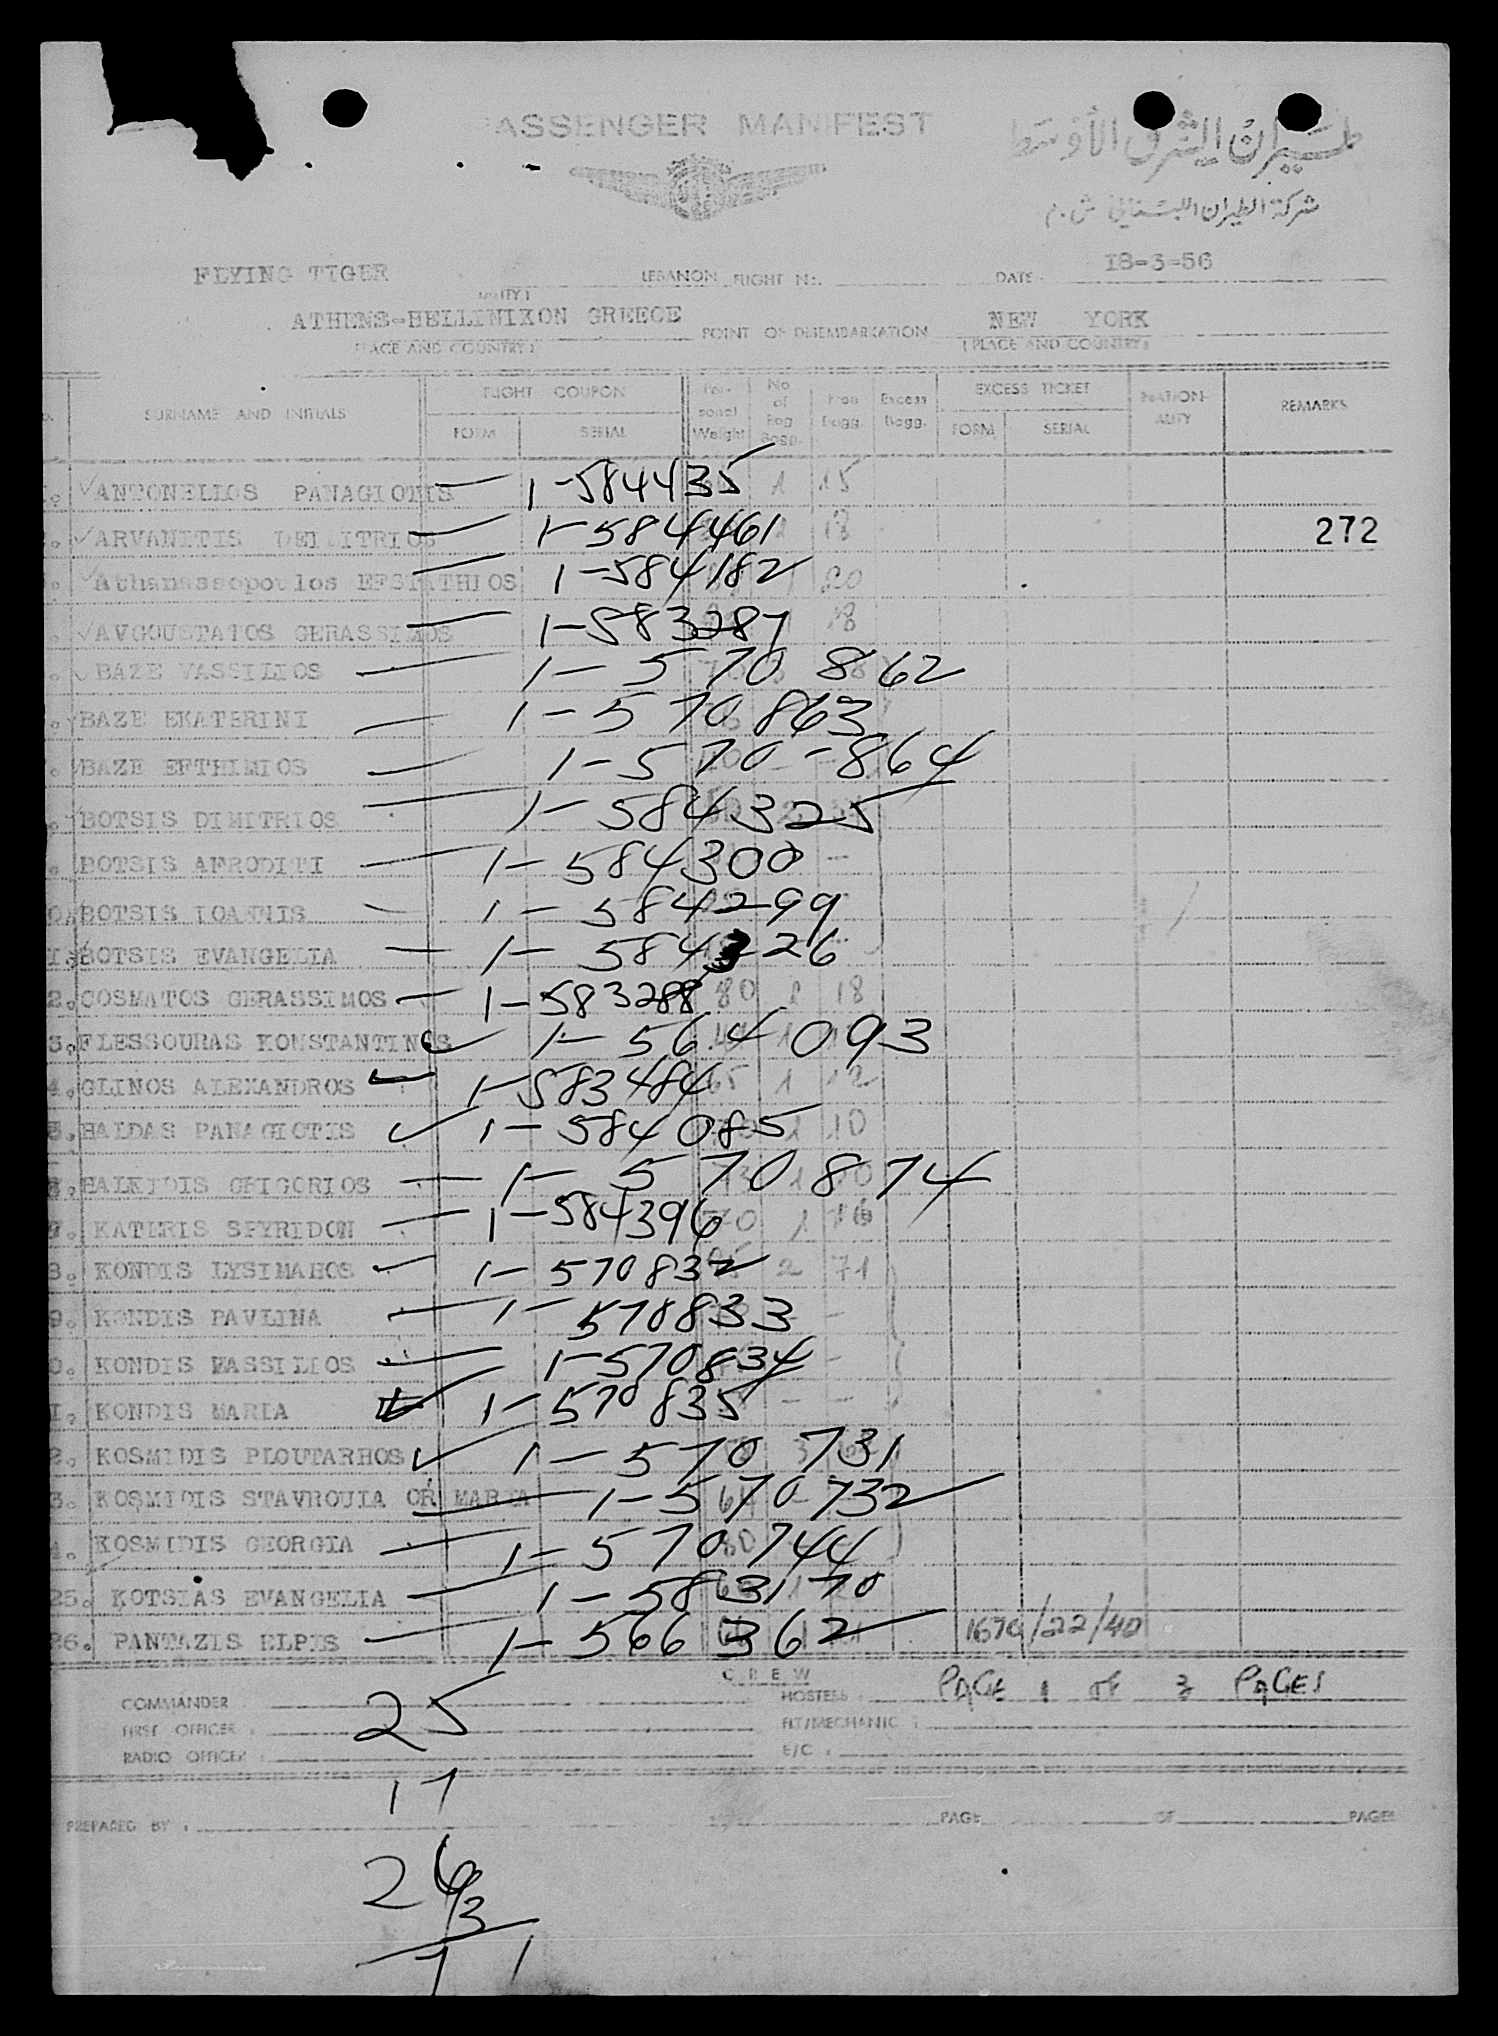 PASSENGER MANIFEST
طيران الشرق الأوسط
شركة الطيران اللبنانية ش.م.
FLYING TIGER LEBANON FLIGHT No. DATE 18-3-56
ATHENS-HELLINIKON GREECE POINT OF DISEMBARKATION NEW YORK
(PLACE AND COUNTRY) (PLACE AND COUNTRY)
SURNAME AND INITIALS FLIGHT COUPON FORM SERIAL Personal Weight No of Bag Bagg. Excess Bagg. EXCESS TICKET FORM SERIAL NATIONALITY REMARKS
ANTONELLOS PANAGIOTIS — 1-584435 1 15
ARVANITIS DEMITRIOS — 1-584461 18 272
Athanassopoulos EFSTATHIOS — 1-584182 1 20
AVGOUSTATOS GERASSIMOS — 1-583287 1 18
BAZE VASSILIOS — 1-570862
BAZE EKATERINI — 1-570863
BAZE EFTHIMIOS — 1-570-864
BOTSIS DIMITRIOS — 1-584325
BOTSIS AFRODITI — 1-584300
BOTSIS IOANNIS — 1-584299
BOTSIS EVANGELIA — 1-584326
2. COSMATOS GERASSIMOS — 1-583288 80 1 18
3. FLESSOURAS KONSTANTINOS 1-564093
4. GLINOS ALEXANDROS — 1-583484 65 1 12
5. HALDAS PANAGIOTIS 1-584085 1 10
HALKIDIS GRIGORIOS — 1-570874
KATERIS SPYRIDON — 1-584396 70 1 16
8. KONDIS LYSIMAHOS — 1-570832 2 71
9. KONDIS PAVLINA — 1-570833 -
0. KONDIS WASSILIOS — 1-570834 -
1. KONDIS MARIA 1-570835 - -
2. KOSMIDIS PLOUTARHOS 1-570731
3. KOSMIDIS STAVROUIA OR MARIA — 1-570732
4. KOSMIDIS GEORGIA — 1-570744
25. KOTSIAS EVANGELIA — 1-583170
26. PANTAZIS ELPIS — 1-566362 1670/22/40
CREW
COMMANDER : HOSTESS : PAGE 1 OF 3 PAGES
FIRST OFFICER : FLT/MECHANIC :
RADIO OFFICER : E/C :
25
17
PREPARED BY : PAGE OF PAGES
26
3
71